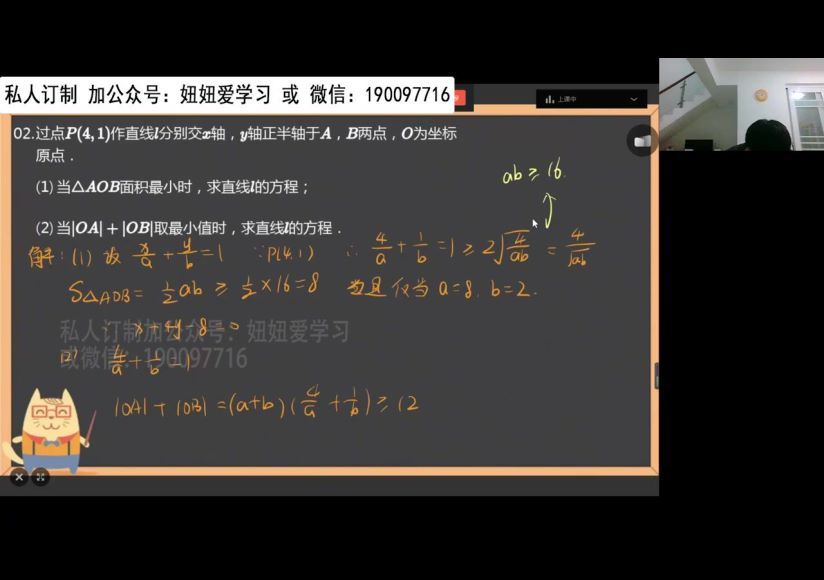 私人订制 加公众号：妞妞爱学习 或 微信：190097716
上课中
02.过点P(4,1)作直线l分别交x轴，y轴正半轴于A，B两点，O为坐标
原点．
(1) 当△AOB面积最小时，求直线l的方程；
ab≥16.
(2) 当|OA|+|OB|取最小值时，求直线l的方程．
解：(1) 设 x/a + y/b = 1 ∵P(4,1) ∴ 4/a + 1/b = 1 ≥ 2√(4/ab) = 4/√ab
S△AOB = 1/2 ab ≥ 1/2 × 16 = 8 当且仅当 a=8, b=2.
x+4y-8=0
私人订制加公众号：妞妞爱学习
或微信：190097716
(2) 4/a + 1/b = 1
|OA| + |OB| = (a+b)(4/a + 1/b) ≥